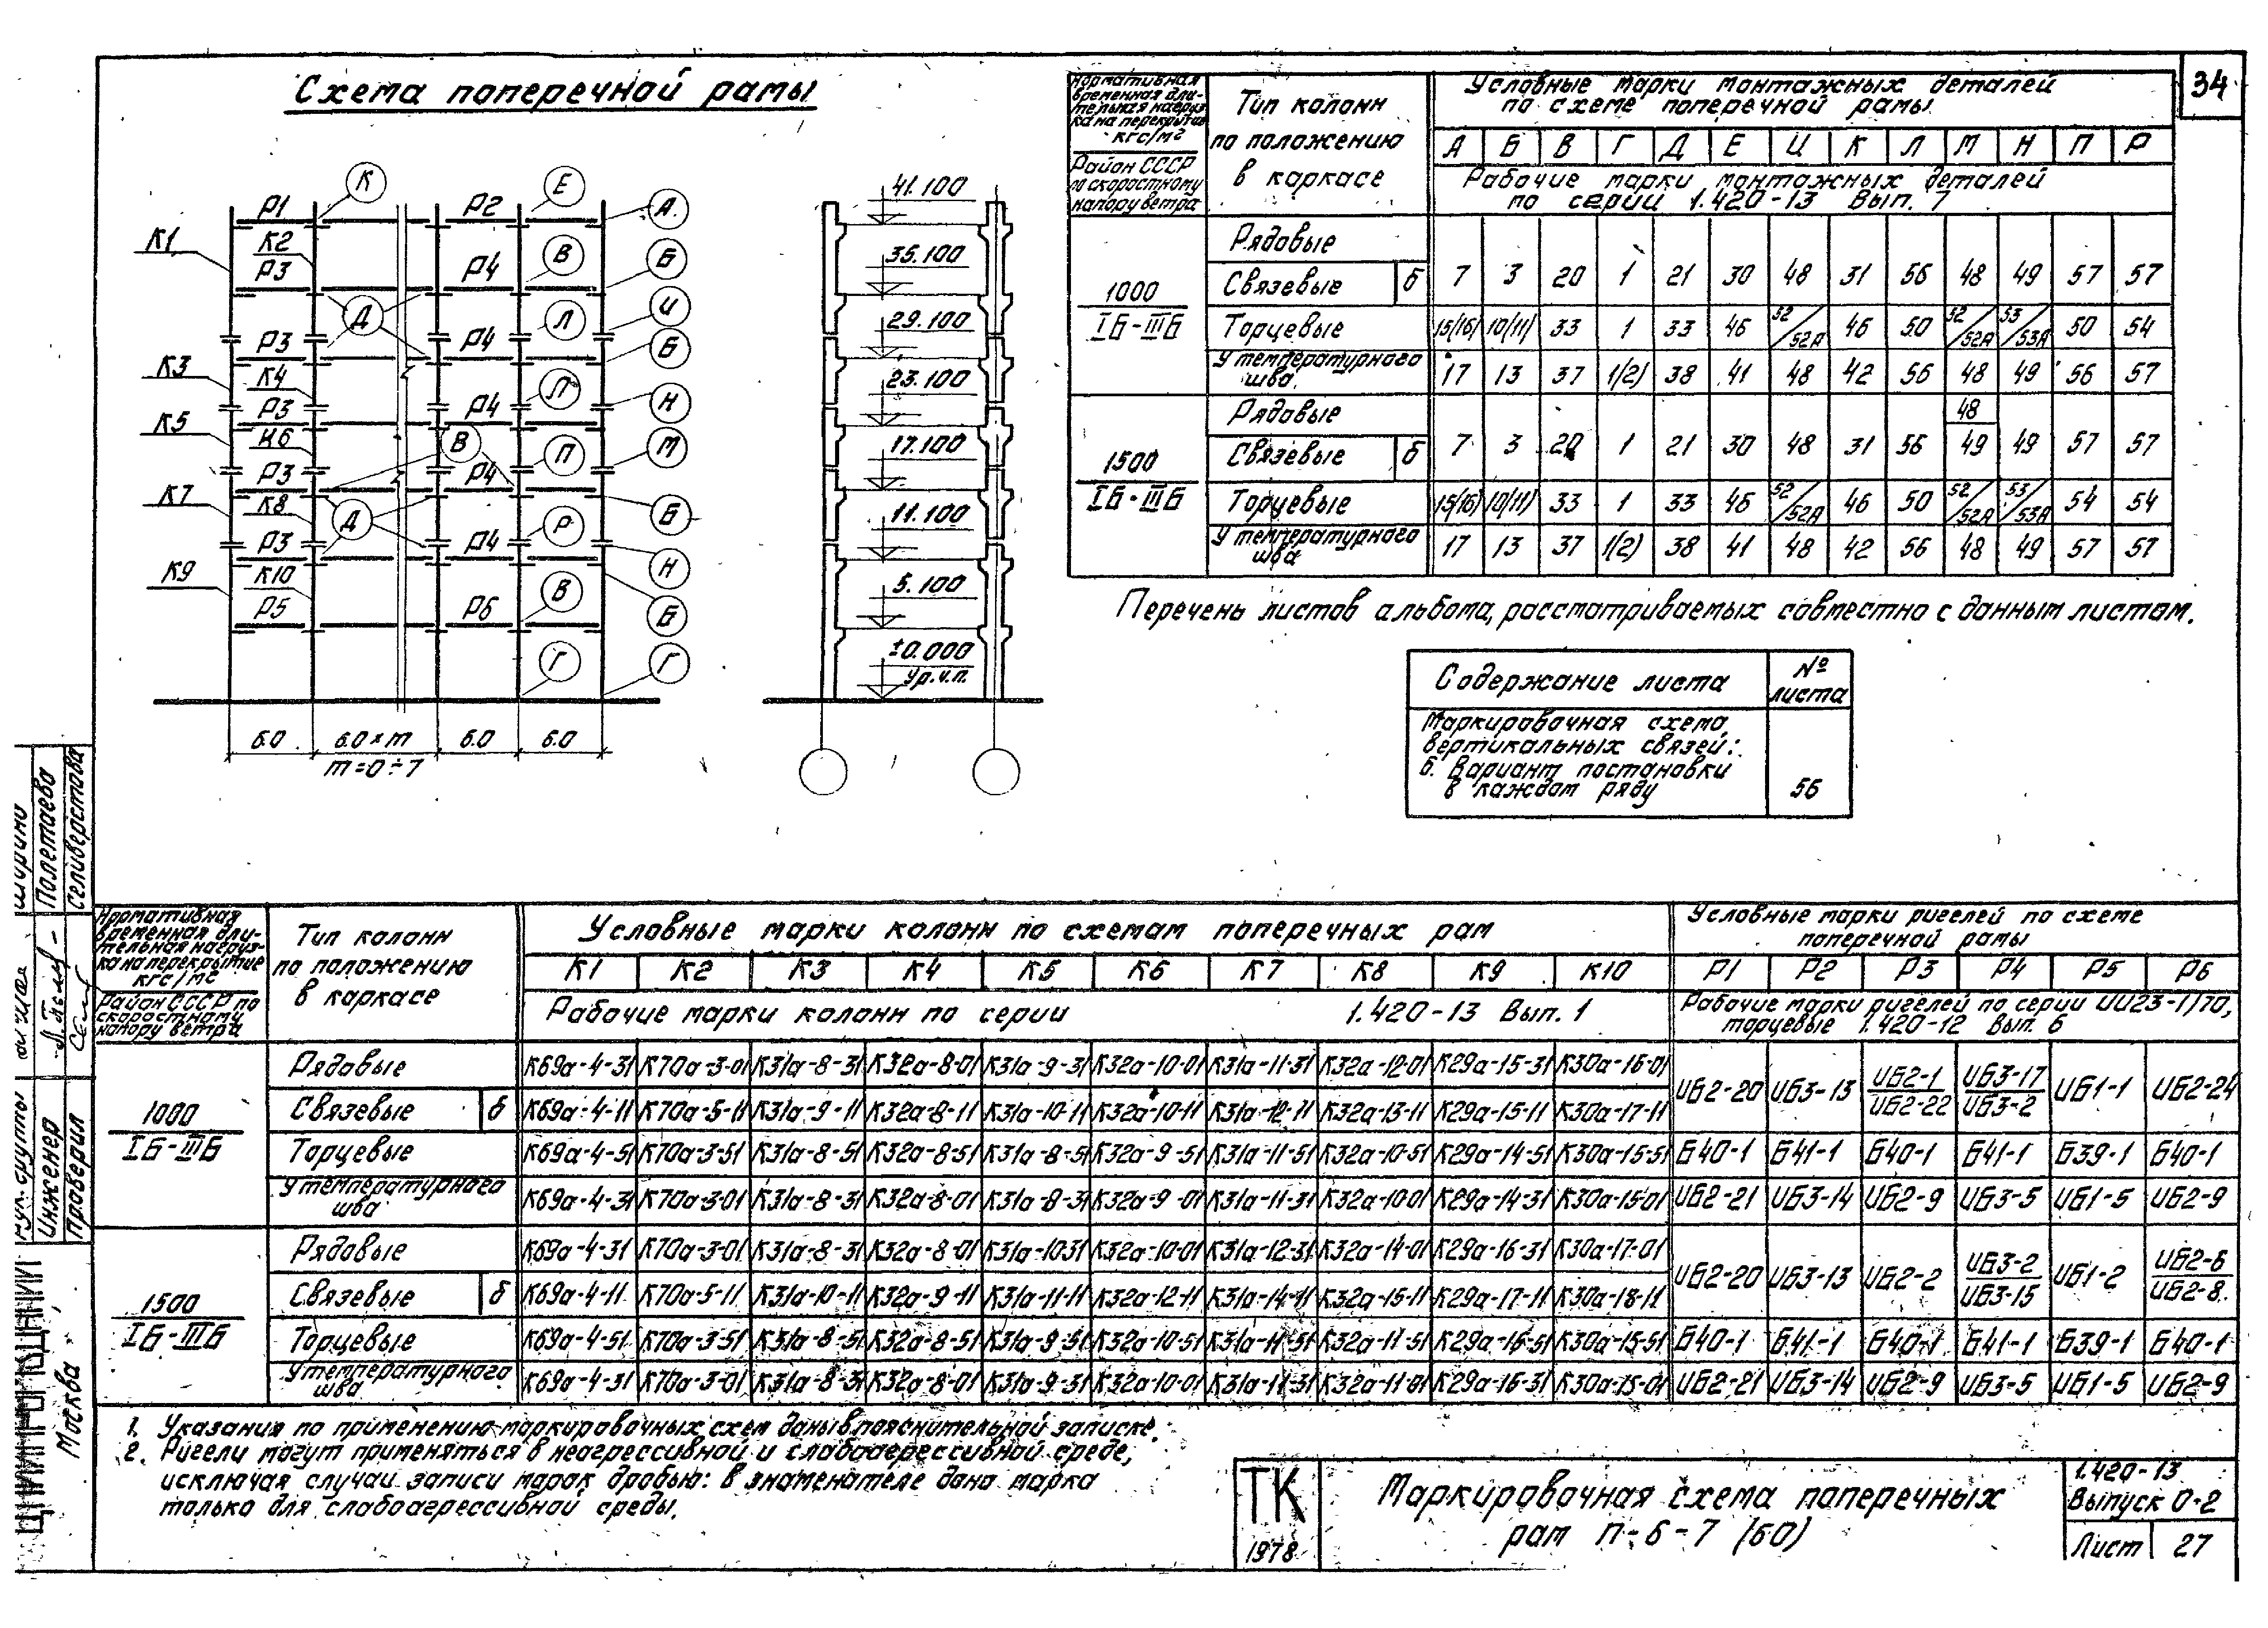 34
Схема поперечной рамы
К Е А
Р1 Р2
К1 К2
Р3 Р4 В Б
Д Л И
Р3 Р4 Б
К3 К4
Р3 Р4 Л Н
К5 К6 В
Р3 Р4 П М
К7 К8 Д Б
Р3 Р4 Р
К9 К10 Н
Р5 Р6 В Б
Г Г
6.0 6.0×m 6.0 6.0
m=0÷7
41.100
35.100
29.100
23.100
17.100
11.100
5.100
±0.000
Ур.ч.п.
Нормативная временная длительная нагрузка на перекрытие кгс/м²
Район СССР по скоростному напору ветра
Тип колонн по положению в каркасе
Условные марки монтажных деталей по схеме поперечной рамы
А Б В Г Д Е И К Л М Н П Р
Рабочие марки монтажных деталей по серии 1.420-13 Вып. 7
1000
IБ-IIIБ
Рядовые
Связевые б 7 3 20 1 21 30 48 31 56 48 49 57 57
Торцевые 15/16/ 10/11/ 33 1 33 46 52/52А 46 50 52/52А 53/53А 50 54
У температурного шва 17 13 37 1/2/ 38 41 48 42 56 48 49 56 57
1500
IБ-IIIБ
Рядовые
Связевые б 7 3 20 1 21 30 48 31 56 48/49 49 57 57
Торцевые 15/16/ 10/11/ 33 1 33 46 52/52А 46 50 52/52А 53/53А 54 54
У температурного шва 17 13 37 1/2/ 38 41 48 42 56 48 49 57 57
Перечень листов альбома, рассматриваемых совместно с данным листом.
Содержание листа № листа
Маркировочная схема
вертикальных связей:
б. Вариант постановки
в каждом ряду 56
Нормативная временная длительная нагрузка на перекрытие кгс/м²
Район СССР по скоростному напору ветра
Тип колонн по положению в каркасе
Условные марки колонн по схемам поперечных рам
Условные марки ригелей по схеме поперечной рамы
К1 К2 К3 К4 К5 К6 К7 К8 К9 К10 Р1 Р2 Р3 Р4 Р5 Р6
Рабочие марки колонн по серии 1.420-13 Вып. 1
Рабочие марки ригелей по серии ИИ23-1/70, торцевые 1.420-12 Вып. 6
1000
IБ-IIIБ
Рядовые К69а-4-31 К70а-3-01 К31а-8-31 К32а-8-01 К31а-9-31 К32а-10-01 К31а-11-31 К32а-12-01 К29а-15-31 К30а-16-01
Связевые б К69а-4-11 К70а-5-11 К31а-9-11 К32а-8-11 К31а-10-11 К32а-10-11 К31а-12-11 К32а-13-11 К29а-15-11 К30а-17-11
ИБ2-20 ИБ3-13 ИБ2-1/ИБ2-22 ИБ3-17/ИБ3-2 ИБ1-1 ИБ2-24
Торцевые К69а-4-51 К70а-3-51 К31а-8-51 К32а-8-51 К31а-8-51 К32а-9-51 К31а-11-51 К32а-10-51 К29а-14-51 К30а-15-51 Б40-1 Б41-1 Б40-1 Б41-1 Б39-1 Б40-1
У температурного шва К69а-4-31 К70а-3-01 К31а-8-31 К32а-8-01 К31а-8-31 К32а-9-01 К31а-11-31 К32а-10-01 К29а-14-31 К30а-15-01 ИБ2-21 ИБ3-14 ИБ2-9 ИБ3-5 ИБ1-5 ИБ2-9
1500
IБ-IIIБ
Рядовые К69а-4-31 К70а-3-01 К31а-8-31 К32а-8-01 К31а-10-31 К32а-10-01 К31а-12-31 К32а-14-01 К29а-16-31 К30а-17-01
Связевые б К69а-4-11 К70а-5-11 К31а-10-11 К32а-9-11 К31а-11-11 К32а-12-11 К31а-14-11 К32а-15-11 К29а-17-11 К30а-18-11
ИБ2-20 ИБ3-13 ИБ2-2 ИБ3-2/ИБ3-15 ИБ1-2 ИБ2-6/ИБ2-8
Торцевые К69а-4-51 К70а-3-51 К31а-8-51 К32а-8-51 К31а-9-51 К32а-10-51 К31а-11-51 К32а-11-51 К29а-16-51 К30а-15-51 Б40-1 Б41-1 Б40-1 Б41-1 Б39-1 Б40-1
У температурного шва К69а-4-31 К70а-3-01 К31а-8-31 К32а-8-01 К31а-9-31 К32а-10-01 К31а-11-31 К32а-11-01 К29а-16-31 К30а-15-01 ИБ2-21 ИБ3-14 ИБ2-9 ИБ3-5 ИБ1-5 ИБ2-9
1. Указания по применению маркировочных схем даны в пояснительной записке.
2. Ригели могут применяться в неагрессивной и слабоагрессивной среде,
исключая случаи записи марок дробью: в знаменателе дана марка
только для слабоагрессивной среды.
ТК
1978
Маркировочная схема поперечных
рам п-6-7 (60)
1.420-13
Выпуск 0-2
Лист 27
Полетаева
Селиверстова
Инженер
Проверил
Москва